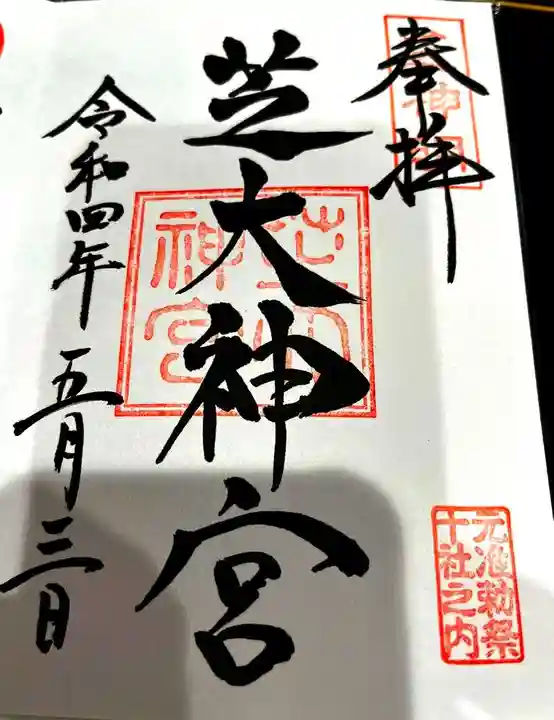 奉拝
元准勅祭
十社之内
芝大神宮
令和四年五月三日